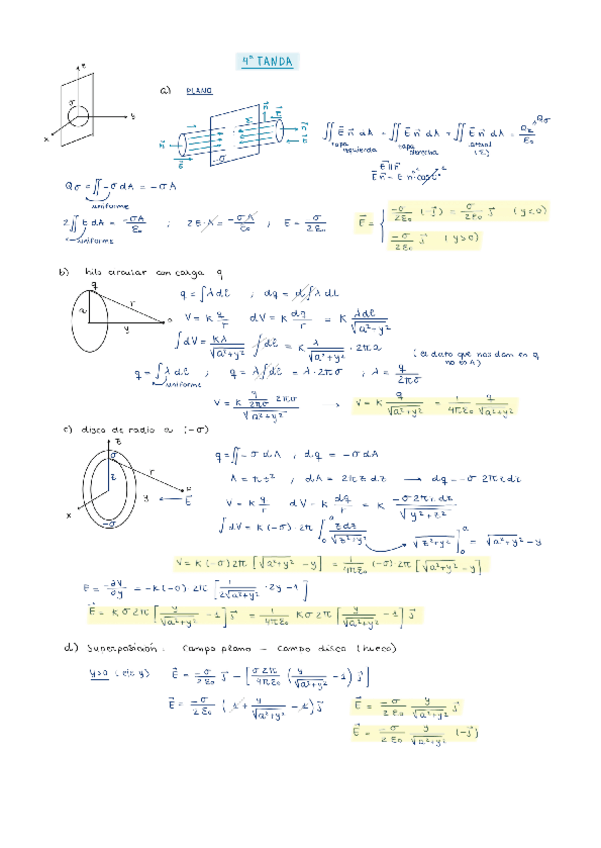 4ª TANDA
a) PLANO
∬ E n dA + ∬ E n dA + ∬ E n dA = Qσ/ε₀
tapa izquierda tapa derecha lateral
Qσ = ∬ -σ dA = -σA
uniforme
2∬ E dA = -σA/ε₀ ; 2E·A = -σA/ε₀ ; E = σ/2ε₀ E = { -σ/2ε₀ (-j) = σ/2ε₀ j (y<0)
-σ/2ε₀ j (y>0)
uniforme
b) hilo circular con carga q
q = ∫λdl ; dq = d∫λdl
V = K q/r dV = K dq/r = K λdl/√(a²+y²)
∫dV = Kλ/√(a²+y²) ∫dl = K λ/√(a²+y²) · 2πa
(el dato que nos dan es q no es λ)
q = ∫λdl ; q = λ∫dl = λ·2πa ; λ = q/2πa
uniforme
V = K q/2πa 2πa/√(a²+y²) → V = K q/√(a²+y²) = 1/4πε₀ q/√(a²+y²)
c) disco de radio a (-σ)
q = ∬ -σ dA , dq = -σ dA
A = πz² , dA = 2πz dz → dq = -σ 2πz dz
V = K q/r dV = K dq/r = K -σ2πz dz/√(y²+z²)
∫dV = K(-σ)·2π ∫₀ᵃ zdz/√(z²+y²) √(z²+y²)]₀ᵃ = √(a²+y²) - y
V = K(-σ)2π [√(a²+y²) - y] = 1/4πε₀ (-σ) 2π [√(a²+y²) - y]
E = -∂V/∂y = -K(-σ) 2π [1/2√(a²+y²) · 2y - 1]
E = Kσ2π [y/√(a²+y²) - 1] j = 1/4πε₀ Kσ2π [y/√(a²+y²) - 1] j
d) Superposición: campo plano - campo disco (hueco)
y>0 (eje y) E = -σ/2ε₀ j - [σ2π/4πε₀ (y/√(a²+y²) - 1) j]
E = -σ/2ε₀ (1 + y/√(a²+y²) - 1) j E = -σ/2ε₀ y/√(a²+y²) j
E = -σ/2ε₀ y/√(a²+y²) (-j)